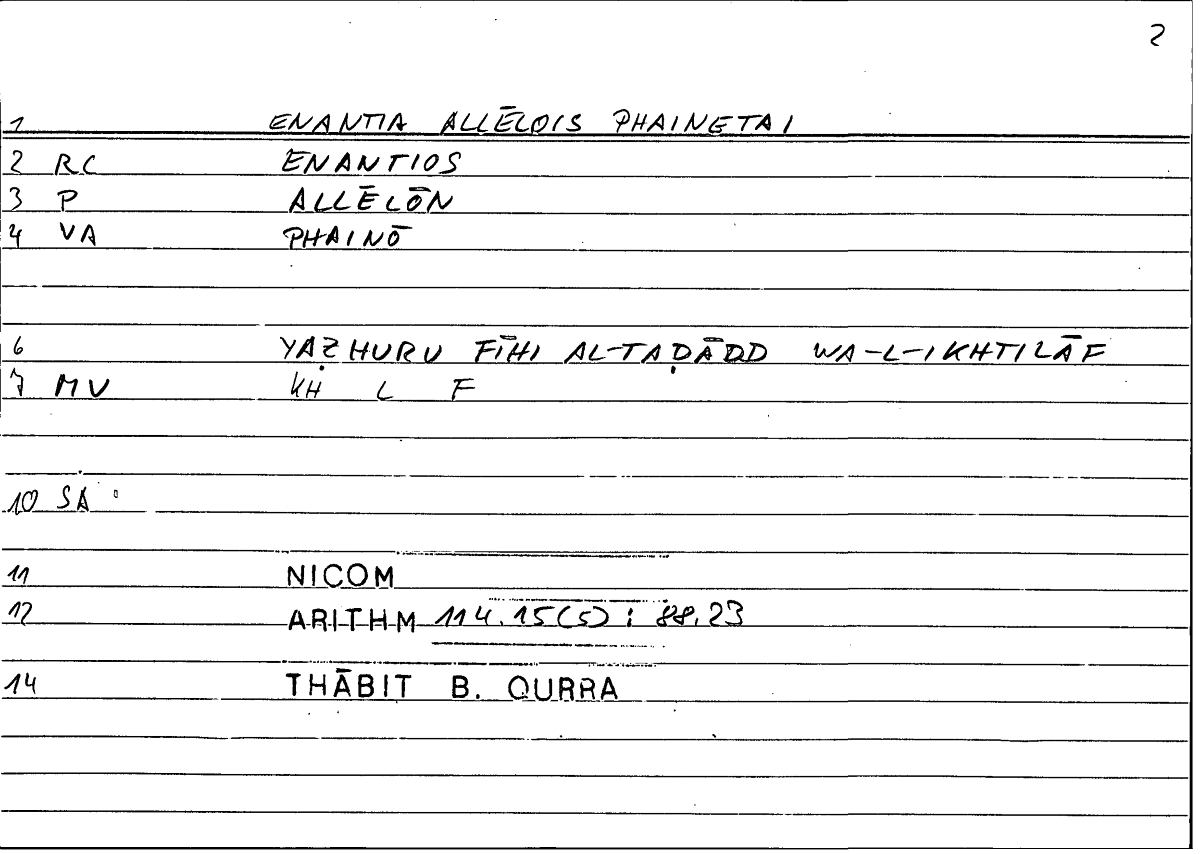 2
1 ENANTIA ALLĒLOIS PHAINETAI
2 RC ENANTIOS
3 P ALLĒLŌN
4 VA PHAINŌ
6 YAẒHURU FĪHI AL-TAḌĀDD WA-L-IKHTILĀF
7 MV KH L F
10 SA
11 NICOM
12 ARITHM 114.15(5) : 88.23
14 THĀBIT B. QURRA